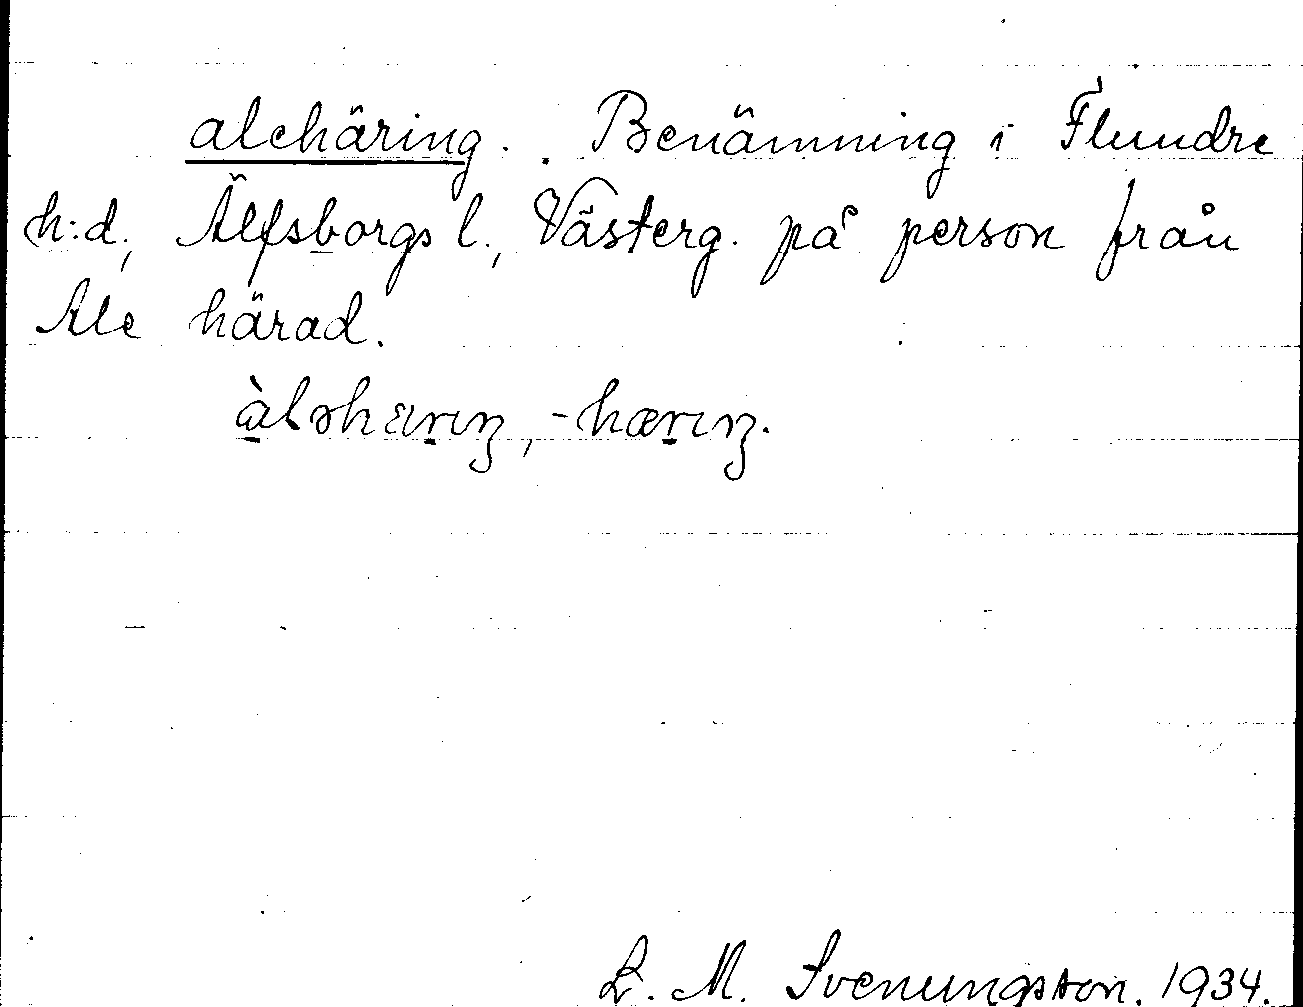 alehäring. Benämning i Flundre
h:d, Älfsborgs l., Västerg. på person från
Ale härad.
àləhärıŋ, -hærıŋ.
L. M. Svenungsson. 1934.